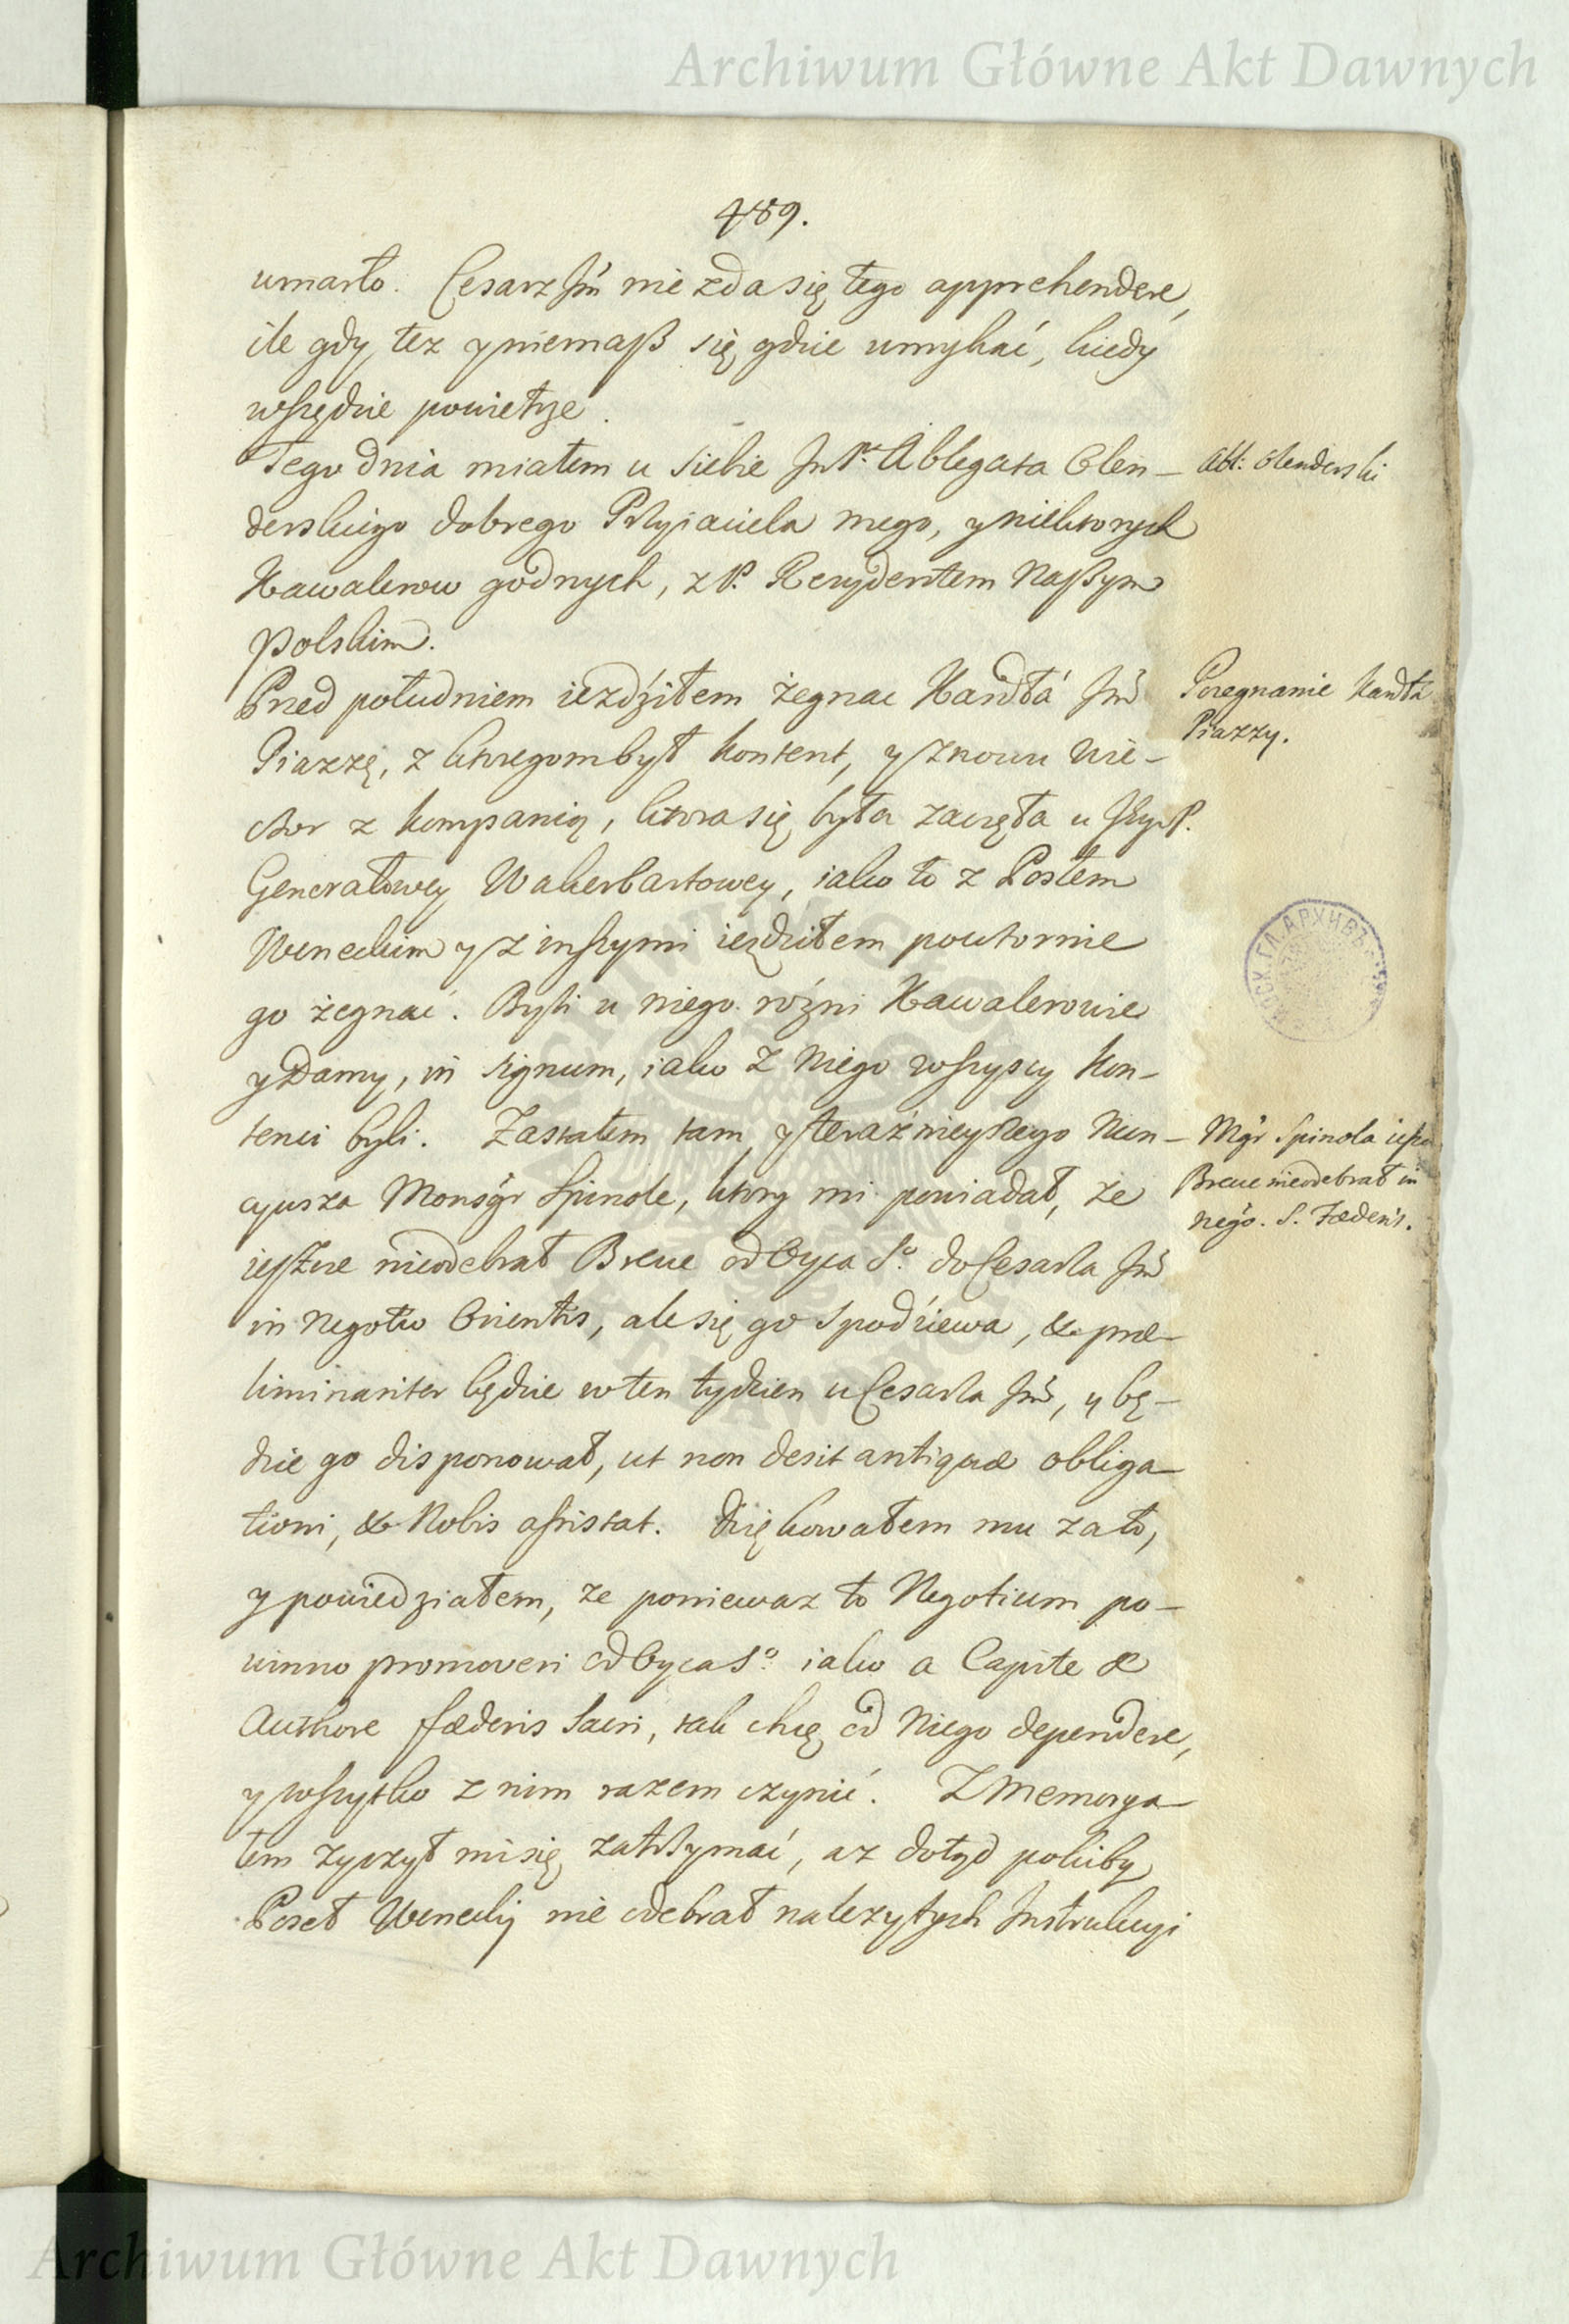 Archiwum Główne Akt Dawnych
489.
umarło. Cesarz Jmć nie zda się tego apprehendere,
ile gdy tez y niemaß się gdzie umykać, kiedy
wszędzie powietrze.
Tego dnia miałem u siebie Jm P. Ablegata Olen-
Abl: Olenderski
derskiego dobrego Przyiaciela mego, y niektorych
Kawalerow godnych, z P. Rezydentem Naßym
Polskim.
Przed południem iezdźiłem żegnac Kardła Jmć
Pozegnanie Kardła
Piazzę, z ktoregom był kontent, y znowu wie-
Piazzy.
czor z kompanią, ktora się była zaczęła u Jey P.
Generałowey Wakerbartowey, iako to z Posłem
Weneckim y z inszymi iezdziłem powtornie
go żegnać. Byli u niego różni Kawalerowie
y Damy, in signum, iako z niego wszyscy kon-
tenci byli. Zastałem tam y teraźnieyszego Nun-
Mgr Spinola ieszcze
cyusza Monsgr Spinole, ktory mi powiadał, ze
Breue nieodebrał in
nego. S. Fæderis.
ieszcze nieodebrał Breue od Oyca S.o do Cesarza Jmć
in negotio Orientis, ale się go spodźiewa, & præ-
liminariter będzie w ten tydzien u Cesarza Jmć, y bę-
dzie go disponował, ut non desit antiquæ obliga-
tioni, & Nobis assistat. Dziękowałem mu za to,
y powiedziałem, ze poniewaz to Negotium po-
winno promoveri od Oyca S.o iako a Capite &
Authore fæderis Sacri, tak chcę od Niego dependere,
y wszytko z nim razem czynić. Z Memorya-
łem zyczył mi się zatrzymać, az dotyd pokiby
Poseł Wenecky nie odebrał nalezytych Instrukcyi
МОСК. ГЛ. АРХИВЪ
Archiwum Główne Akt Dawnych